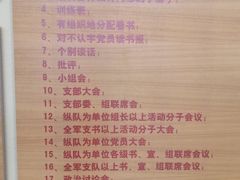 4、训练班；
5、有组织地分配看书；
6、对不认字党员读书报；
7、个别谈话；
8、批评；
9、小组会；
10、支部大会；
11、支部委、组联席会；
12、纵队为单位组长以上活动分子会议；
13、全军支书以上活动分子大会；
14、纵队为单位党员大会；
15、纵队为单位各级书、宣、组联席会；
16、全军支队以上书、宣、组联席会；
17、政治讨论会；